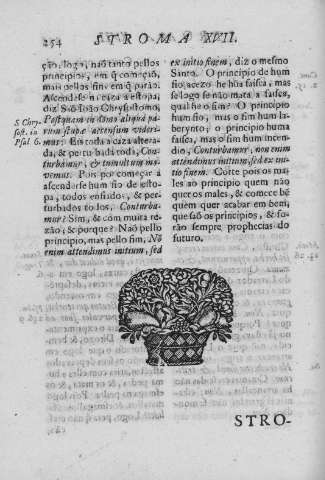 254
STROMA XVII.
ção, logo, naõ tanto pellos
principios, em q̃ começõ,
mais pellos fins em q̃ parão.
Ascendese em caza a estopa,
diz Saõ Ioão Chrysostomo,
Postquam in domo aliqua pa-
rum stupæ accensum videri-
mus: Eis toda a caza altera-
da, & perturbada toda, Con-
turbamur, & tumultum mo-
vemus. Pois por começar a
ascenderse hum fio de esto-
pa, todos enfiados, & per-
turbados todos; Conturba-
mur? Sim, & com muita re-
zão; & porque? Naõ pello
principio, mas pello fim, Nõ
enim attendimus initium, sed
S. Chry-
sost. in
Psal 6.
ex initio finem, diz o mesmo
Santo. O principio de hum
fio acezo he hũa faisca, mas
se logo se não mata a faisca,
qual he o fim? O principio
hum fio, mas o fim hum la-
berynto; o principio huma
faisca, mas o fim hum incen-
dio, Conturbamur, non enim
attendimus initium, sed ex ini-
tio finem. Corte pois os ma-
les ao principio quem não
quer os males, & comece bẽ
quem quer acabar em bem,
que saõ os principios, & se-
rão sempre prophecias do
futuro.
STRO-